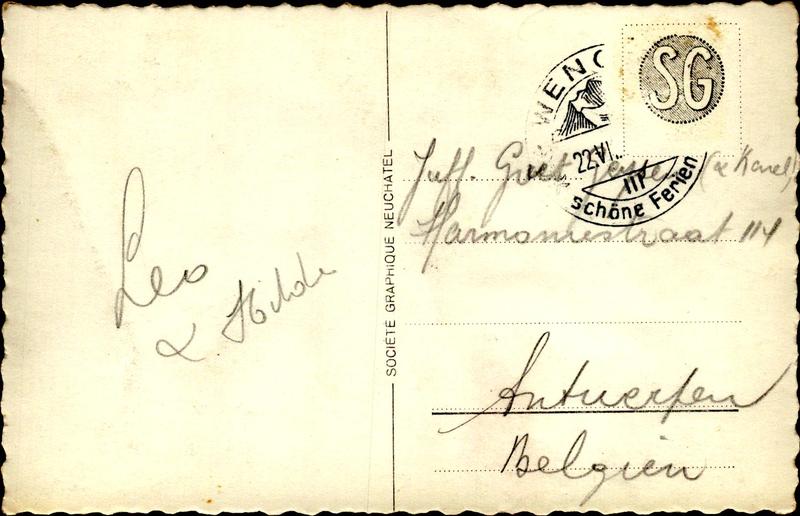 Leo
& Hilde
SOCIÉTÉ GRAPHIQUE NEUCHATEL
SG
WENG
22.VI.
schöne Ferien
Juff. Griet (& Karel)
Harmoniestraat 114
Antwerpen
Belgien